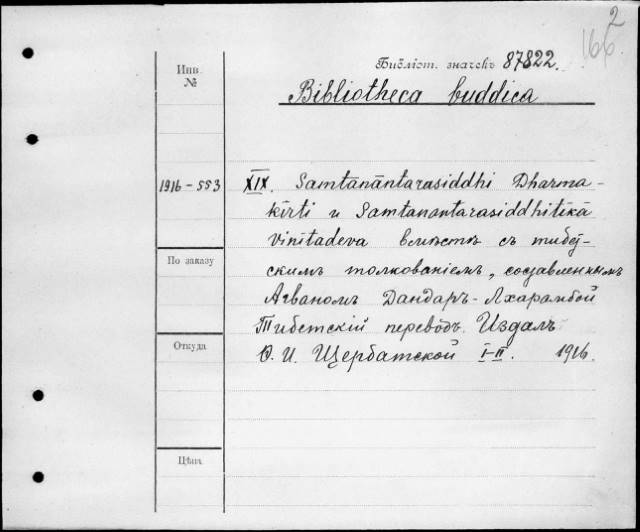 2
166
Инв.
№
Библіот. значекъ 87822.
Bibliotheca buddica
1916-553
XIX. Samtānāntarasiddhi Dharma-
kīrti и Samtanantarasiddhitīkā
Vinītadeva вмѣстѣ съ тибет-
скимъ толкованіемъ, составленнымъ
По заказу
Агваномъ Дандаръ-Лхарамбой
Тибетскій переводъ. Издалъ
Откуда
Ѳ. И. Щербатской I-II. 1916.
Цѣна